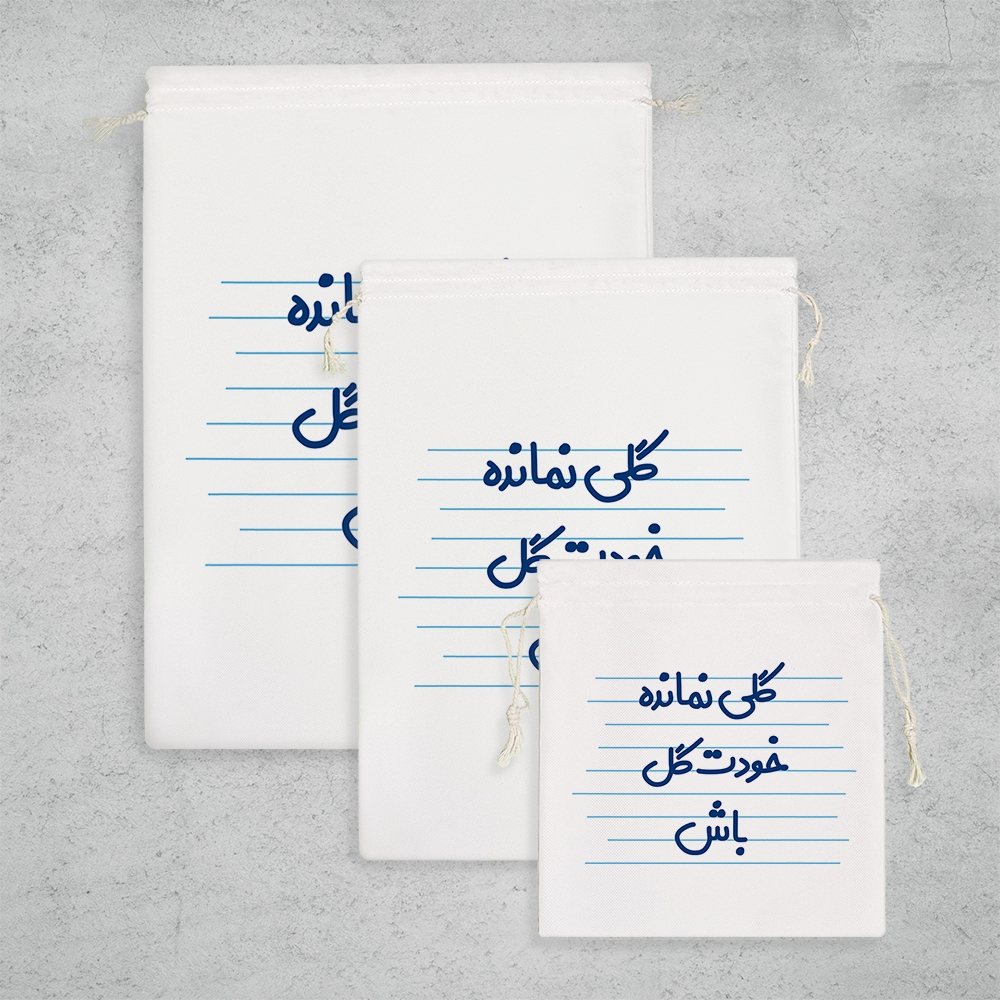 مانده
گل
گلی نمانده
خودت گل
گلی نمانده
خودت گل
باش